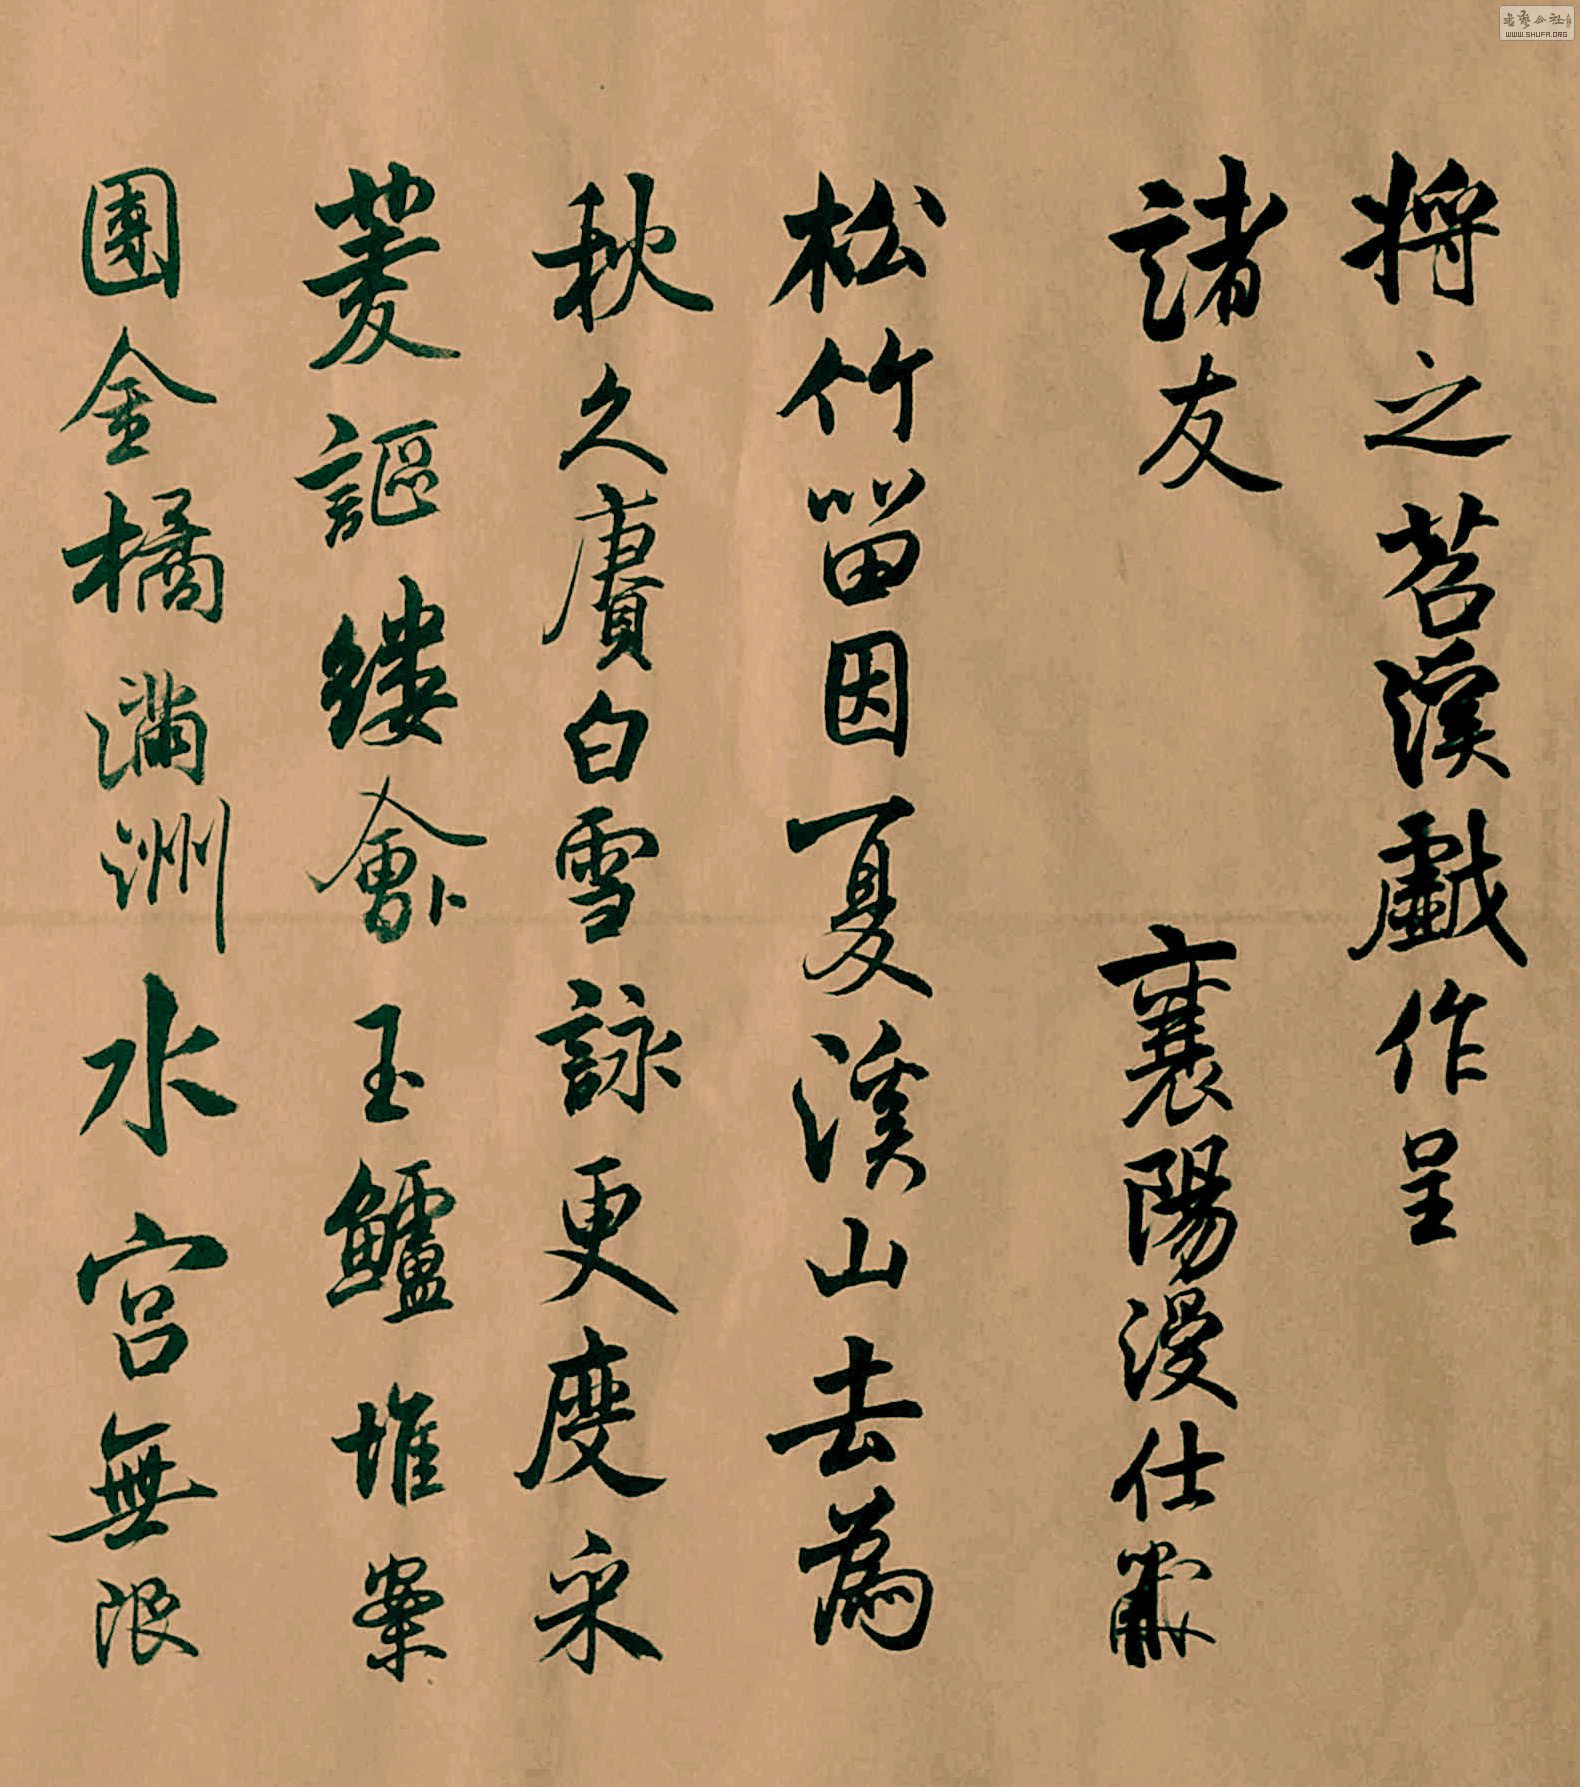 將之苕溪戲作呈
諸友 襄陽漫仕黻
松竹留因夏溪山去為
秋久賡白雪詠更度采
菱謳縷會卜玉鱸堆案
團金橘滿洲水宮無限
WWW.SHUFA.ORG